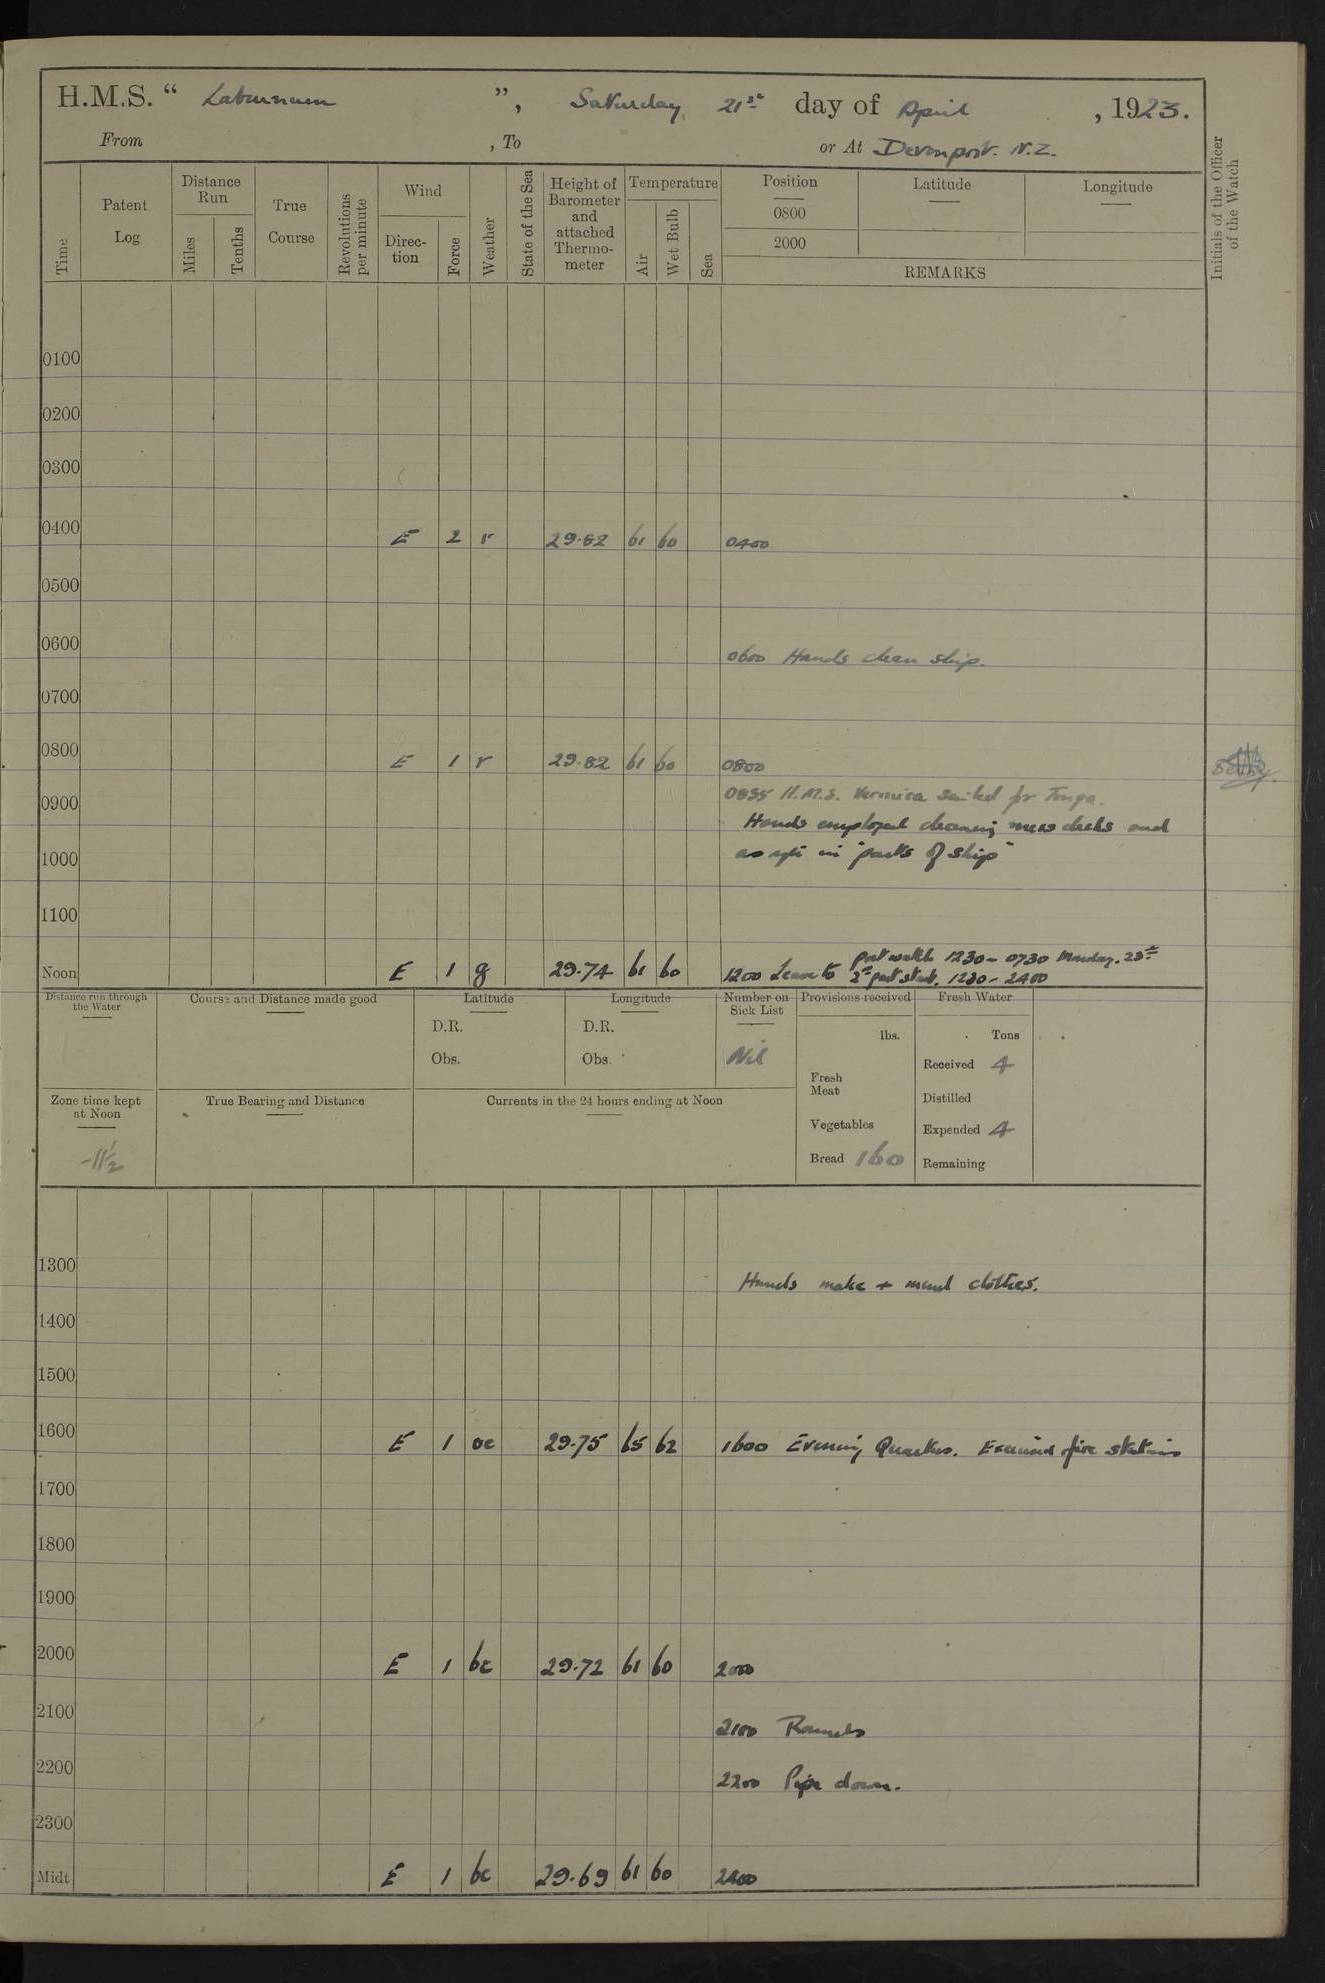 H.M.S. “ Laburnum ”, Saturday 21st day of April, 1923.
From , To or At Devonport. N.Z.
Time
Patent Log
Distance Run
Miles
Tenths
True Course
Revolutions per minute
Wind
Direc-tion
Force
Weather
State of the Sea
Height of Barometer and attached Thermo-meter
Temperature
Air
Wet Bulb
Sea
Position
0800
2000
Latitude
Longitude
REMARKS
Initials of the Officer of the Watch
0100
0200
0300
0400 E 2 r 29.82 61 60 0400
0500
0600 0600 Hands clean ship.
0700
0800 E 1 r 29.82 61 60 0800
0900 0835 H.M.S. Veronica sailed for Tonga.
Hands employed cleaning mess decks and
1000 as req. in "parts of ship"
1100
Port watch 1230 - 0730 Monday. 23rd
Noon E 1 g 29.74 61 60 1200 Leave to 2nd part starb. 1230 - 2400
Distance run through the Water
Course and Distance made good
Latitude
D.R.
Obs.
Longitude
D.R.
Obs.
Number on Sick List
Nil
Provisions received
lbs.
Fresh Meat
Vegetables
Bread 160
Fresh Water
Tons
Received 4
Distilled
Expended 4
Remaining
Zone time kept at Noon
-11½
True Bearing and Distance
Currents in the 24 hours ending at Noon
1300 Hands make + mend clothes.
1400
1500
1600 E 1 oc 29.75 65 62 1600 Evening Quarters. Exercised fire stations
1700
1800
1900
2000 E 1 bc 29.72 61 60 2000
2100 2100 Rounds
2200 2200 Pipe down.
2300
Midt E 1 bc 29.69 61 60 2400